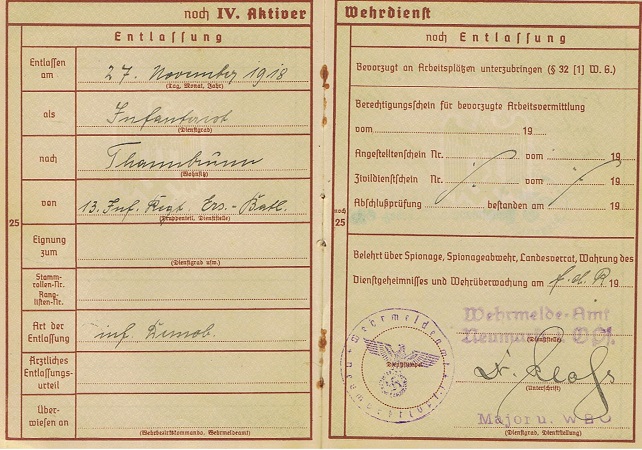 noch IV. Aktiver
Entlassung
Entlassen am
27. November 1918
(Tag, Monat, Jahr)
als
Infanterist
(Dienstgrad)
nach
Thannbrunn
(Wohnsitz)
25
von
13. Inf. Regt. Ers.-Batl.
(Truppenteil, Dienststelle)
Eignung zum
(Dienstgrad usw.)
Stamm-
rollen-Nr.
Rang-
listen-Nr.
Art der
Entlassung
inf. Demob.
Ärztliches
Entlassungs-
urteil
Über-
wiesen an
(Wehrbezirkskommando, Wehrmeldeamt)
Wehrdienst
noch Entlassung
Bevorzugt an Arbeitsplätzen unterzubringen (§ 32 [1] W. G.)
Berechtigungsschein für bevorzugte Arbeitsvermittlung
vom 19
Angestelltenschein Nr. vom 19
Zivildienstschein Nr. vom 19
Abschlußprüfung bestanden am 19
noch
25
Belehrt über Spionage, Spionageabwehr, Landesverrat, Wahrung des
Dienstgeheimnisses und Wehrüberwachung am f.d.R. 19
Wehrmelde-Amt
Neumarkt OPf.
(Dienststelle)
Dienststempel
(Unterschrift)
Major u. WBO
(Dienstgrad, Dienststellung)